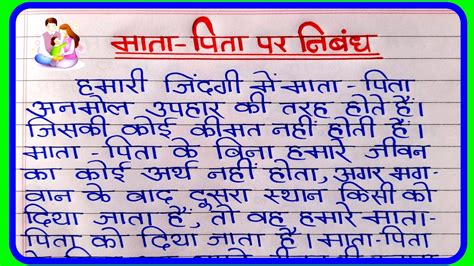 माता-पिता पर निबंध
हमारी जिंदगी में माता-पिता
अनमोल उपहार की तरह होते हैं।
जिसकी कोई कीमत नहीं होती हैं।
माता-पिता के बिना हमारे जीवन
का कोई अर्थ नहीं होता, अगर भग-
वान के बाद दूसरा स्थान किसी को
दिया जाता हैं, तो वह हमारे माता-
पिता को दिया जाता है। माता-पिता